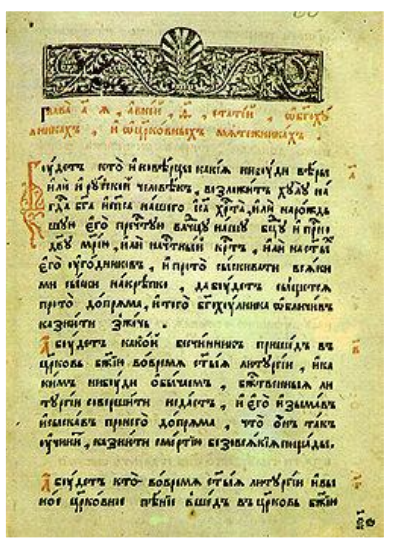 Глава а҃ я , а в ней , ѳ҃ , статей , ѡ бг҃оху
лникахъ , и ѡ цр҃ковныхъ мятежникахъ .
Боудетъ кто иновѣрцы какия нибоуди вѣры
или и рускои человѣкъ , возложитъ хулу на
гд҃а бг҃а и сп҃са нашего іс҃а хр҃та , или нарождь
шую его преч҃тую вл҃чцу нашу бц҃у и присно
дв҃у мр҃ию , или на ч҃тныи кр҃тъ , или на ст҃ыхъ
его оугодниковъ , и про то сыскивати всяки
ми сыски накрѣпко , да боудетъ сыщется
про то допряма , и того бг҃охулника ѡбличивъ
казнити зжечь .
А боудетъ какои бесчинникъ пришедъ въ
цр҃ковь бж҃ию во время ст҃ыя литургии , и ка
кимъ нибоуди обычаемъ , бж҃ственныя ли
тургии совершити не дастъ , и его изымавъ
и сыскавъ про него допряма , что онъ такъ
оучинитъ , казнити смертию безо всякия пощады .
А боудетъ кто во время ст҃ыя литургии и въи
ное цр҃ковное пѣние вшедъ въ цр҃ковь бж҃ию
а҃
в҃
г҃